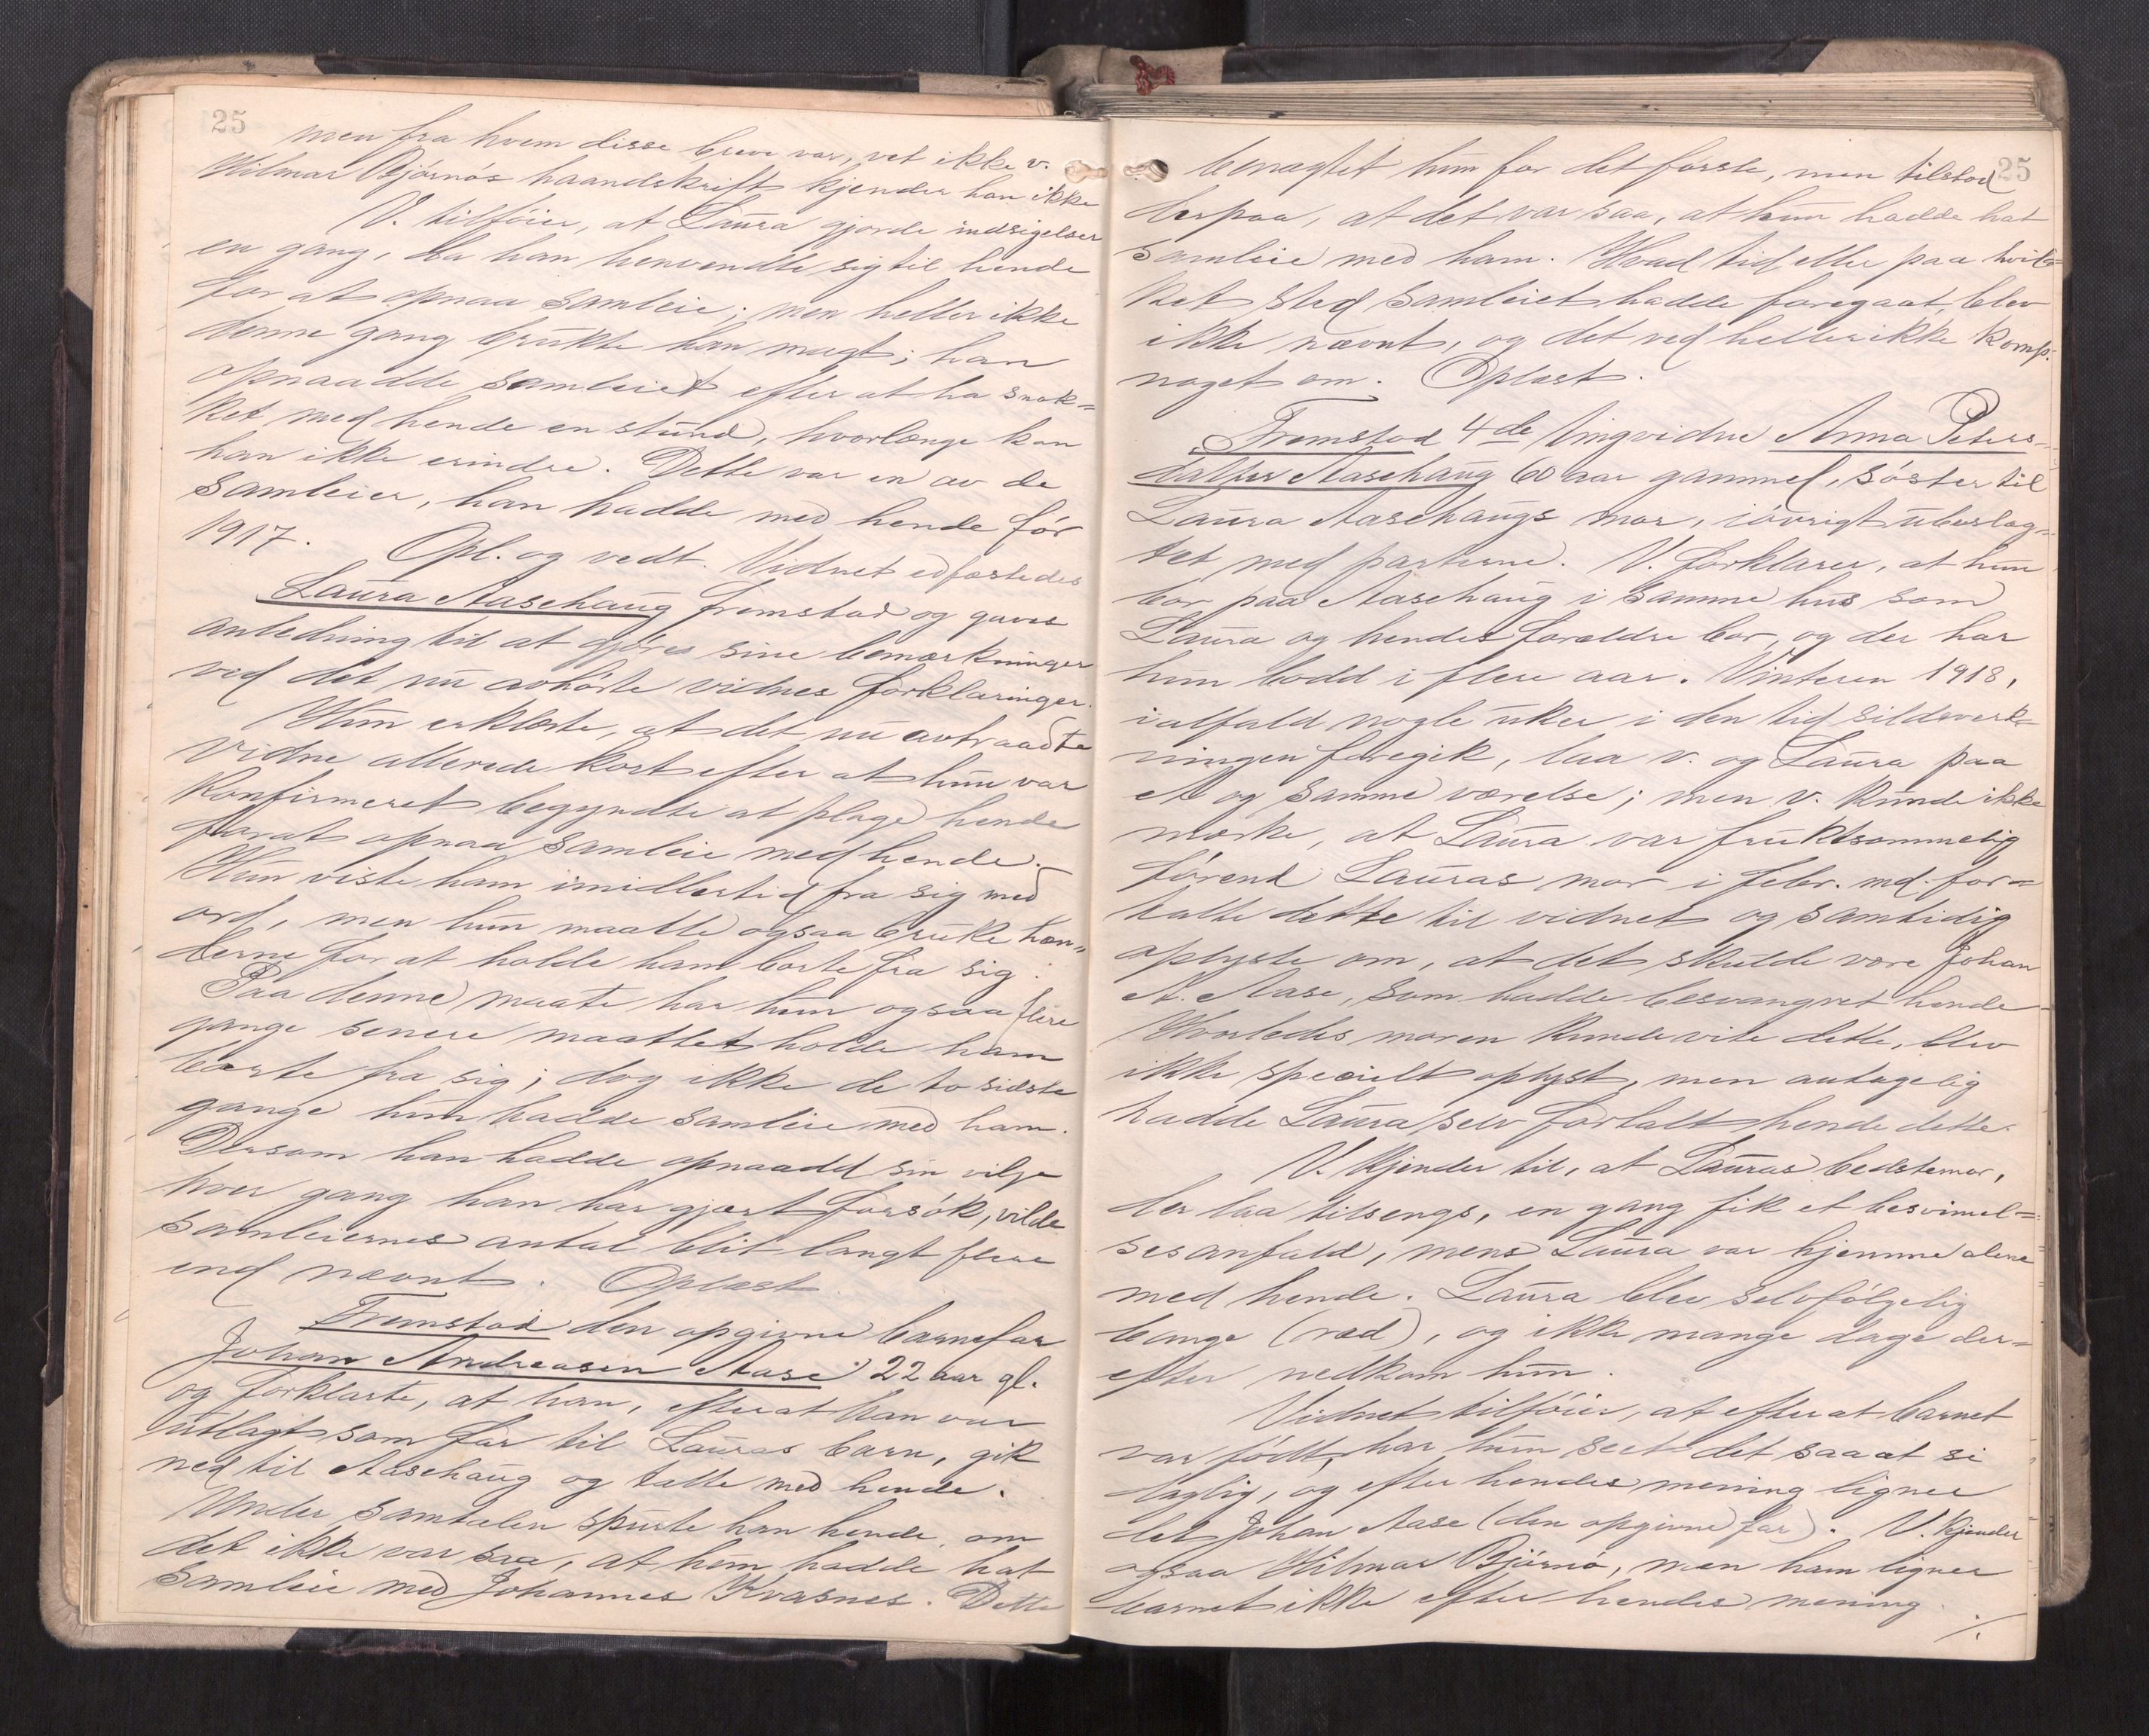 25
men fra hvem disse breve var, vet ikke v.
Hilmar Bjørnøs haandskrift kjender han ikke
V. tilføier, at Laura gjorde indsigelser
en gang, da han henvendte sig til hende
for at opnaa samleie; men heller ikke
denne gang brukte han magt; han
opnaadde samleiet efter at ha snak=
ket med hende en stund, hvorlænge kan
han ikke erindre. Dette var en av de
samleier, han hadde med hende før
1917. Opl. og vedt. Vidnet edfæstedes
Laura Aasehaug fremstod og gaves
anledning til at gjøre sine bemærkninger
ved det nu avhørte vidnes forklaringer.
Hun erklærte, at det nu avtraadte
vidne allerede kort efter at hun var
konfirmeret begyndte at plage hende
for at opnaa samleie med hende.
Hun viste ham imidlertid fra sig med
ord, men hun maatte ogsaa bruke hæn=
derne for at holde ham borte fra sig.
Paa denne maate har hun ogsaa flere
gange senere maattet holde ham
borte fra sig; dog ikke de to sidste
gange hun hadde samleie med ham.
Dersom han hadde opnaadd sin vilje
hver gang han har gjort forsøk, vilde
samleiernes antal blit langt flere
end nævnt. Oplæst
Fremstod den opgivne barnefar
Johan Andreasen Aase 22 aar gl.
og forklarte, at han, efter at han var
utlagt som far til Lauras barn, gik
ned til Aasehaug og talte med hende.
Under samtalen spurte han hende, om
det ikke var saa, at hun hadde hat
samleie med Johannes Kvasnes. Dette
25
benægtet hun for det første, men tilstod
derpaa, at det var saa, at hun hadde hat
samleie med ham. Hvad tid eller paa hvil=
ket sted samleiet hadde foregaat, blev
ikke nævnt, og det ved heller ikke komp.
noget om. Oplæst.
Fremstod 4de tingvidne Anna Peters=
datter Aasehaug 60 aar gammel, søster til
Laura Aasehaugs mor, iøvrigt ubeslæg=
tet med parterne. V. forklarer, at hun
bor paa Aasehaug i samme hus som
Laura og hendes forældre bor, og der har
hun bodd i flere aar. Vinteren 1918,
ialfald nogle uker i den tid sildvirk=
ningen foregik, laa v. og Laura paa
et og samme værelse; men v. kunde ikke
merke, at Laura var fruktsommelig
førend Lauras mor i febr. md. for=
talte dette til vidnet og samtidig
oplyste om, at det skulde være Johan
A. Aase, som hadde besvangret hende
Hvorledes moren kunde vite dette, blev
ikke specielt oplyst, men antagelig
hadde Laura selv fortalt hende dette.
V. kjender til, at Lauras bedstemor,
der laa tilsengs, en gang fik et besvimel=
sesanfald, mens Laura var hjemme alene
med hende. Laura blev selvfølgelig
bange (ræd), og ikke mange dage der=
efter nedkom hun.
Vidnet tilføier, at efter at barnet
var født, har hun seet det saa at si
daglig, og efter hendes mening ligner
det Johan Aase (den opgivne far). V. kjender
ogsaa Hilmar Bjørnø, men ham ligner
barnet ikke efter hendes mening.
./.